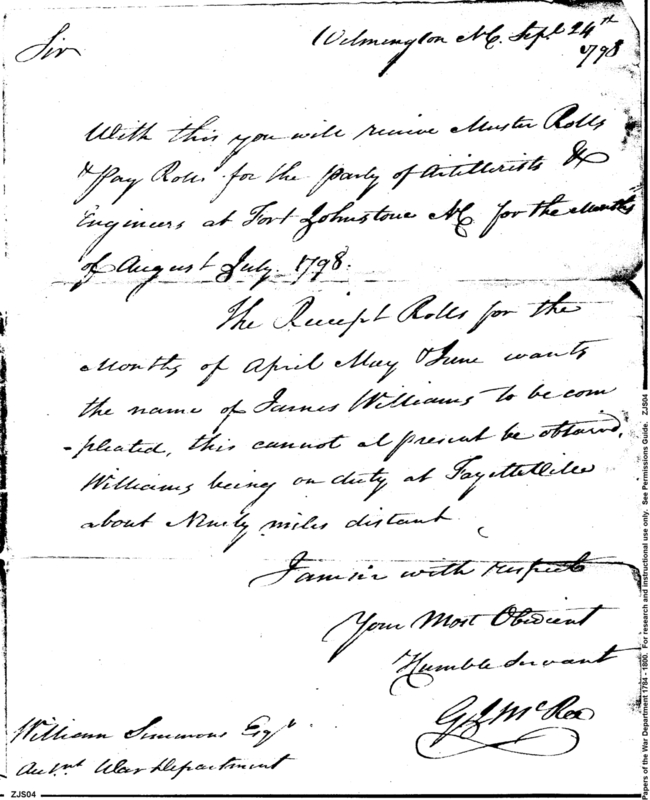 Wilmington NC. Sept. 24th
1798
Sir
With this you will receive Muster Rolls
& Pay Rolls for the party of Artillerists &
Engineers at Fort Johnstone NC for the Months
of August July 1798.
The Receipt Rolls for the
Months of April May & June wants
the name of James Williams to be com
-pleated, this cannot at present be obtaind,
Williams being on duty at Fayetteville
about Ninety miles distant
I am sir with respect
Your Most Obedient
Humble Servant
G J McRee
William Simmons Esqr.
War Department
ZJS04
Papers of the War Department 1784 - 1800. For research and instructional use only. See Permissions Guide. ZJS04